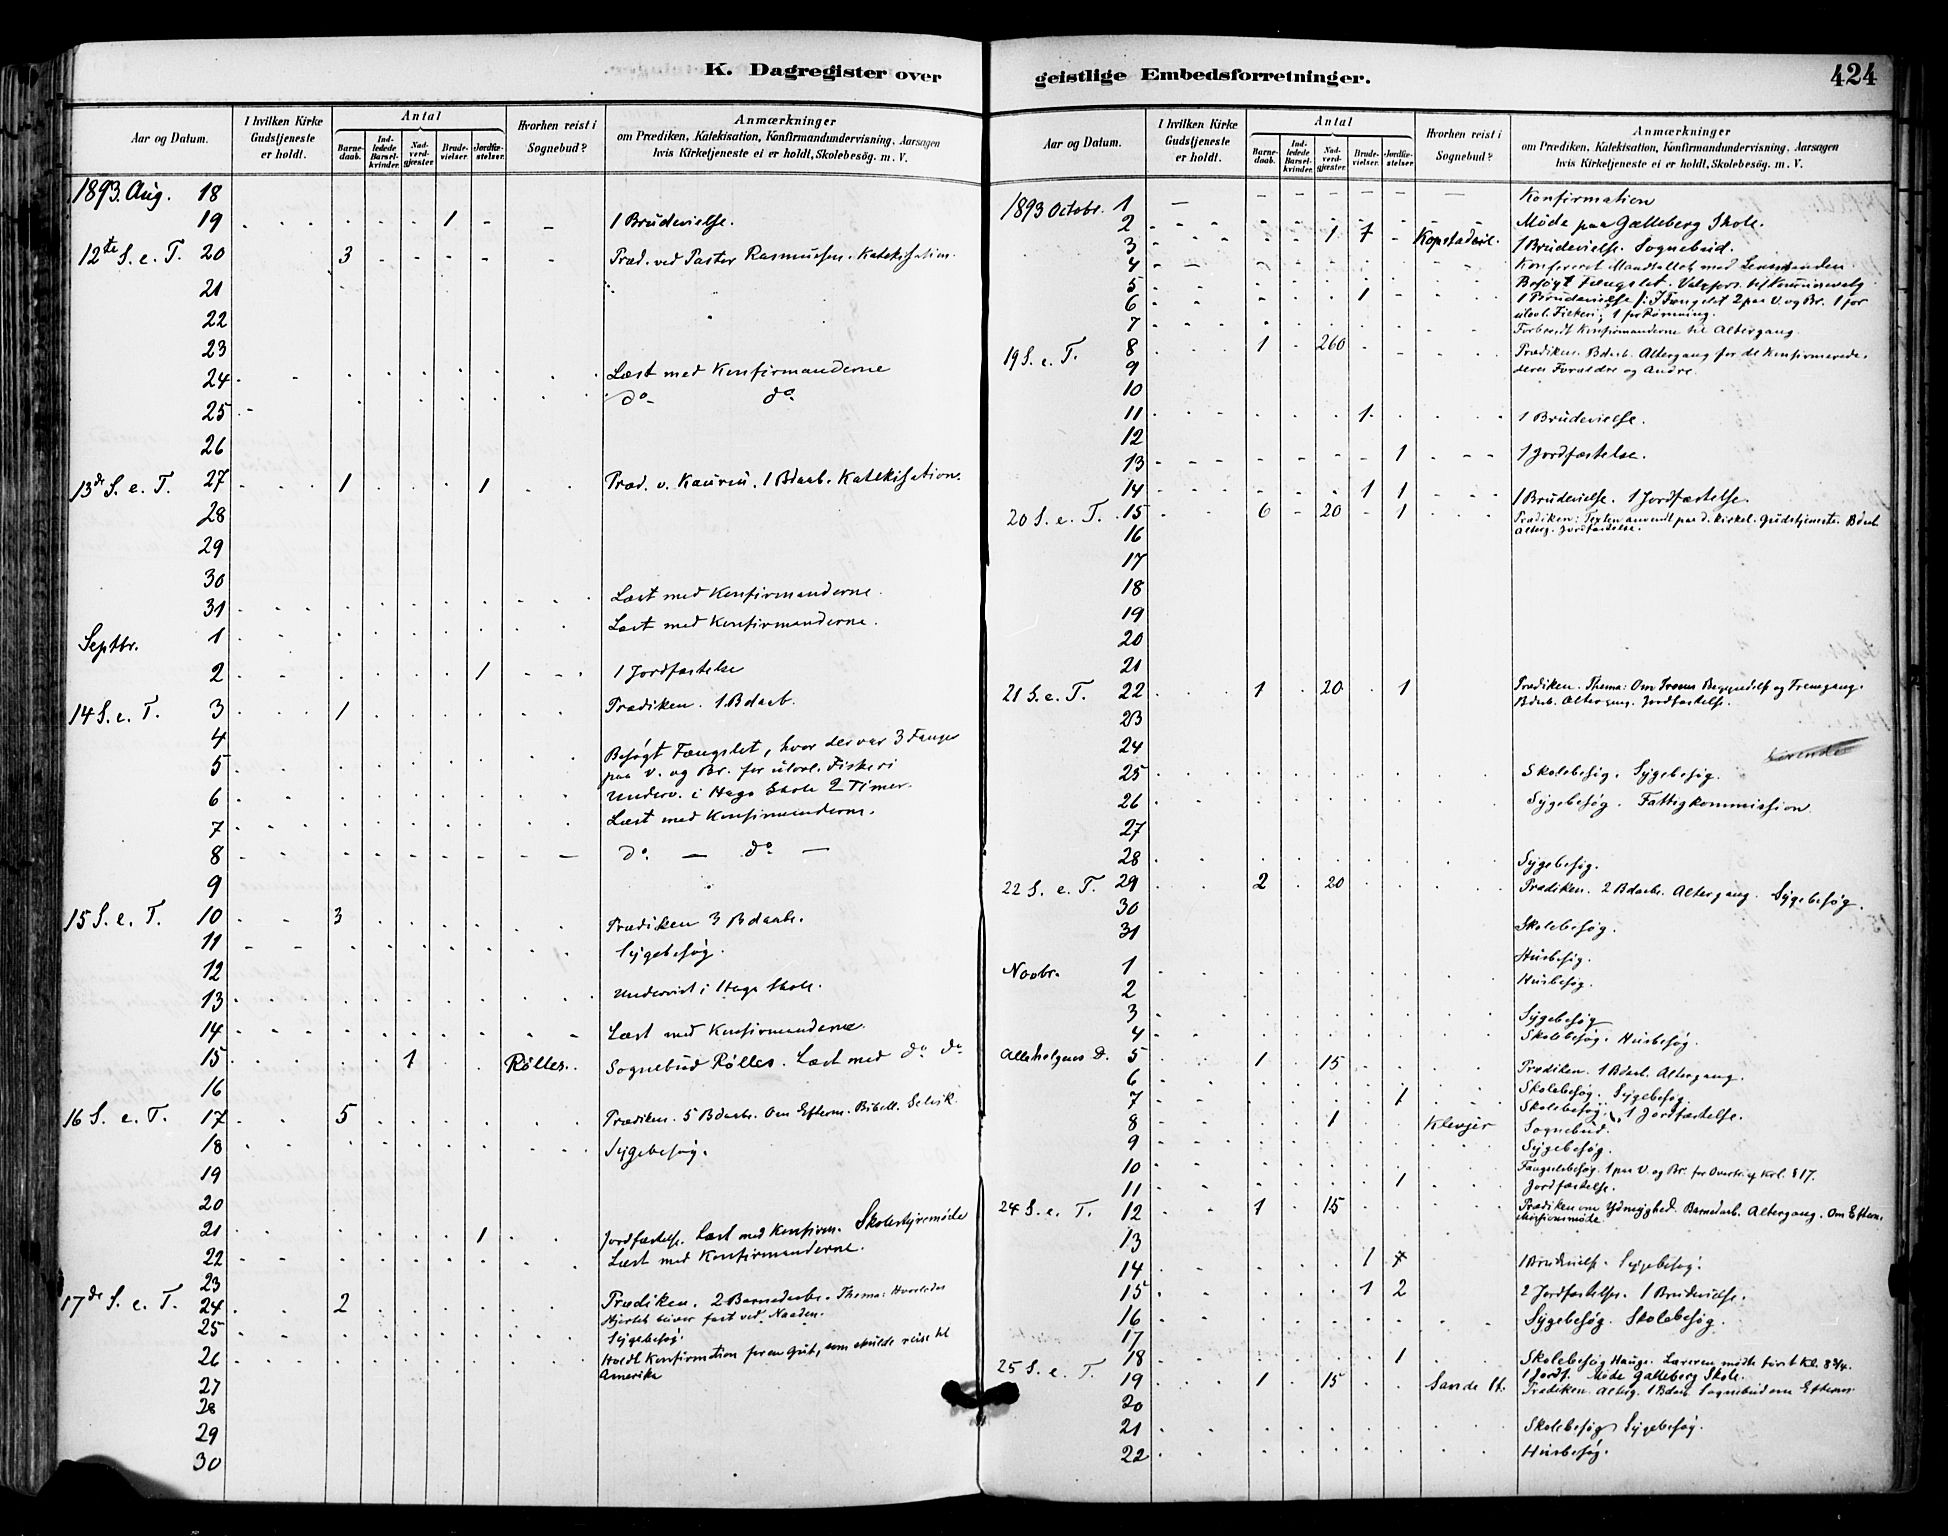 K. Dagregister over
Aar og Datum.
I hvilken Kirke Gudstjeneste er holdt.
Antal
Barnedaab.
Indledede Barselkvinder.
Nadverdgjester
Brudevielser.
Jordfæstelser.
Hvorhen reist i Sognebud?
Anmærkninger
om Prædiken, Katekisation, Konfirmandundervisning, Aarsagen
hvis Kirketjeneste ei er holdt, Skolebesög. m. V.
1893. Aug. 18
19 1 1 Brudevielse.
12te S. e. T. 20 3 Præd. ved Pastor Rasmussen. Katekisation.
21
22
23
24 Læst med Konfirmanderne
25 do do
26
13de S. e. T. 27 1 1 Præd. v. Kaurin. 1 Bdaab. Katekisation.
28
29
30
31 Læst med Konfirmanderne.
Septbr. 1 Læst med Konfirmanderne.
2 1 1 Jordfæstelse
14 S. e. T. 3 1 Prædiken. 1 Bdaab.
4
5 Besøgt Fængslet, hvor der var 3 Fanger
paa V. og Br. for ulovl. Fiskeri
6 Underv. i Haga Skole 2 Timer.
7 Læst med Konfirmanderne.
8 do — do —
9
15 S. e. T. 10 3 Prædiken 3 Bdaab.
11 Sygebesøg.
12
13 Undervist i Haga Skole.
14 Læst med Konfirmanderne.
15 1 Rølles. Sognebud Rølles. Læst med do do
16
16 S. e. T. 17 5 Prædiken. 5 Bdaab. Om Efterm. Bibell. Selvik.
18 Sygebesøg.
19
20
21 1 Jordfæstelse. Læst med Konfirm. Skolestyremøde
22 Læst med Konfirmanderne.
23
17de S. e. T. 24 2 Prædiken. 2 Barnedaab. Thema: Hvorledes
Hjertet bliver fast ved Naaden.
25 Sygebesøg.
26 Holdt Konfirmation for en Gut, som skulde reise til
Amerika
27
28
29
30
geistlige Embedsforretninger.
424
Aar og Datum.
I hvilken Kirke Gudstjeneste er holdt.
Antal
Barnedaab.
Indledede Barselkvinder.
Nadverdgjester.
Brudevielser.
Jordfæstelser
Hvorhen reist i Sognebud?
Anmærkninger
om Prædiken, Katekisation, Konfirmandundervisning, Aarsagen
hvis Kirketjeneste ei er holdt, Skolebesög. m. V.
1893 Octobr. 1 Konfirmation
2 Møde paa Galleberg Skole.
3 1 1 1 Brudevielse. Sognebud.
4 Konfereret Mandtallet med Lensmanden
5 Besøgt Fængslet.
6 1 1 Brudevielse I Fængslet 2 paa V. og Br. 1 for
ulovl. Fiskeri, 1 for Rømning.
7 Forberedt Konfirmanderne til Altergang.
19 S. e. T. 8 1 260 Prædiken. Bdaab. Altergang for de Konfirmerede.
9 deres Forældre og Andre.
10
11 1 1 Brudevielse.
12
13 1 1 Jordfæstelse.
14 1 1 1 Brudevielse. 1 Jordfæstelse.
20 S. e. T. 15 6 20 1 Prædiken: Texten anvendt paa d. kirkel. Gudstjeneste. Bdaab
Alterg. Jordfæstelse.
16
17
18
19
20
21
21 S. e. T. 22 1 20 1 Prædiken. Thema: Om Troens Begyndelse og Fremgang.
Bdaab. Altergang. Jordfæstelse.
23
24
25 Skolebesøg. Sygebesøg.
26 Sygebesøg. Fattigkommission
27
28 Sygebesøg.
22 S. e. T. 29 2 20 Prædiken. 2 Bdaab. Altergang. Sygebesøg.
30
31 Skolebesøg.
Novbr. 1 Husbesøg.
2 Husbesøg.
3 Sygebesøg
4 Skolebesøg. Husbesøg.
Allehelgens D. 5 1 15 Prædiken. 1 Bdaab. Altergang.
6 Skolebesøg. Sygebesøg.
7 1 Skolebesøg. 1 Jordfæstelse.
8 1 Klevjer Sognebud.
9 Sygebesøg.
10 Fængselsbesøg. 1 paa V. og Br. for Overtr. af Krl. § 17.
11 1 Jordfæstelse.
24 S. e. T. 12 1 15 Prædiken om Ydmyghed. Barnedaab. Altergang. Om Efterm.
Missionsmøde
13
14 1 1 Brudevielse. Sygebesøg.
15 1 2 2 Jordfæstelser. 1 Brudevielse.
16 Sygebesøg. Skolebesøg.
17
18 1 Skolebesøg Hauge. Læreren mødte først Kl. 8 3/4.
1 Jordf. Møde Galleberg Skole.
25 S. e. T. 19 1 15 Sande St. Prædiken. Alterg. 1 Bdaab. Sognebud om Efterm.
20
21 Skolebesøg Sygebesøg.
22 Husbesøg.